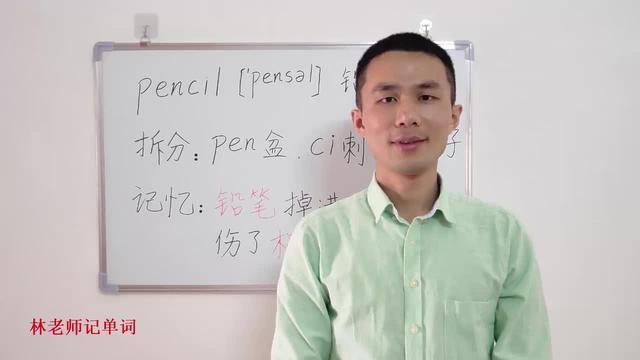 pencil ['pensəl]
拆分: pen盆.ci刺 子
记忆: 铅笔 掉进
伤了
林老师记单词